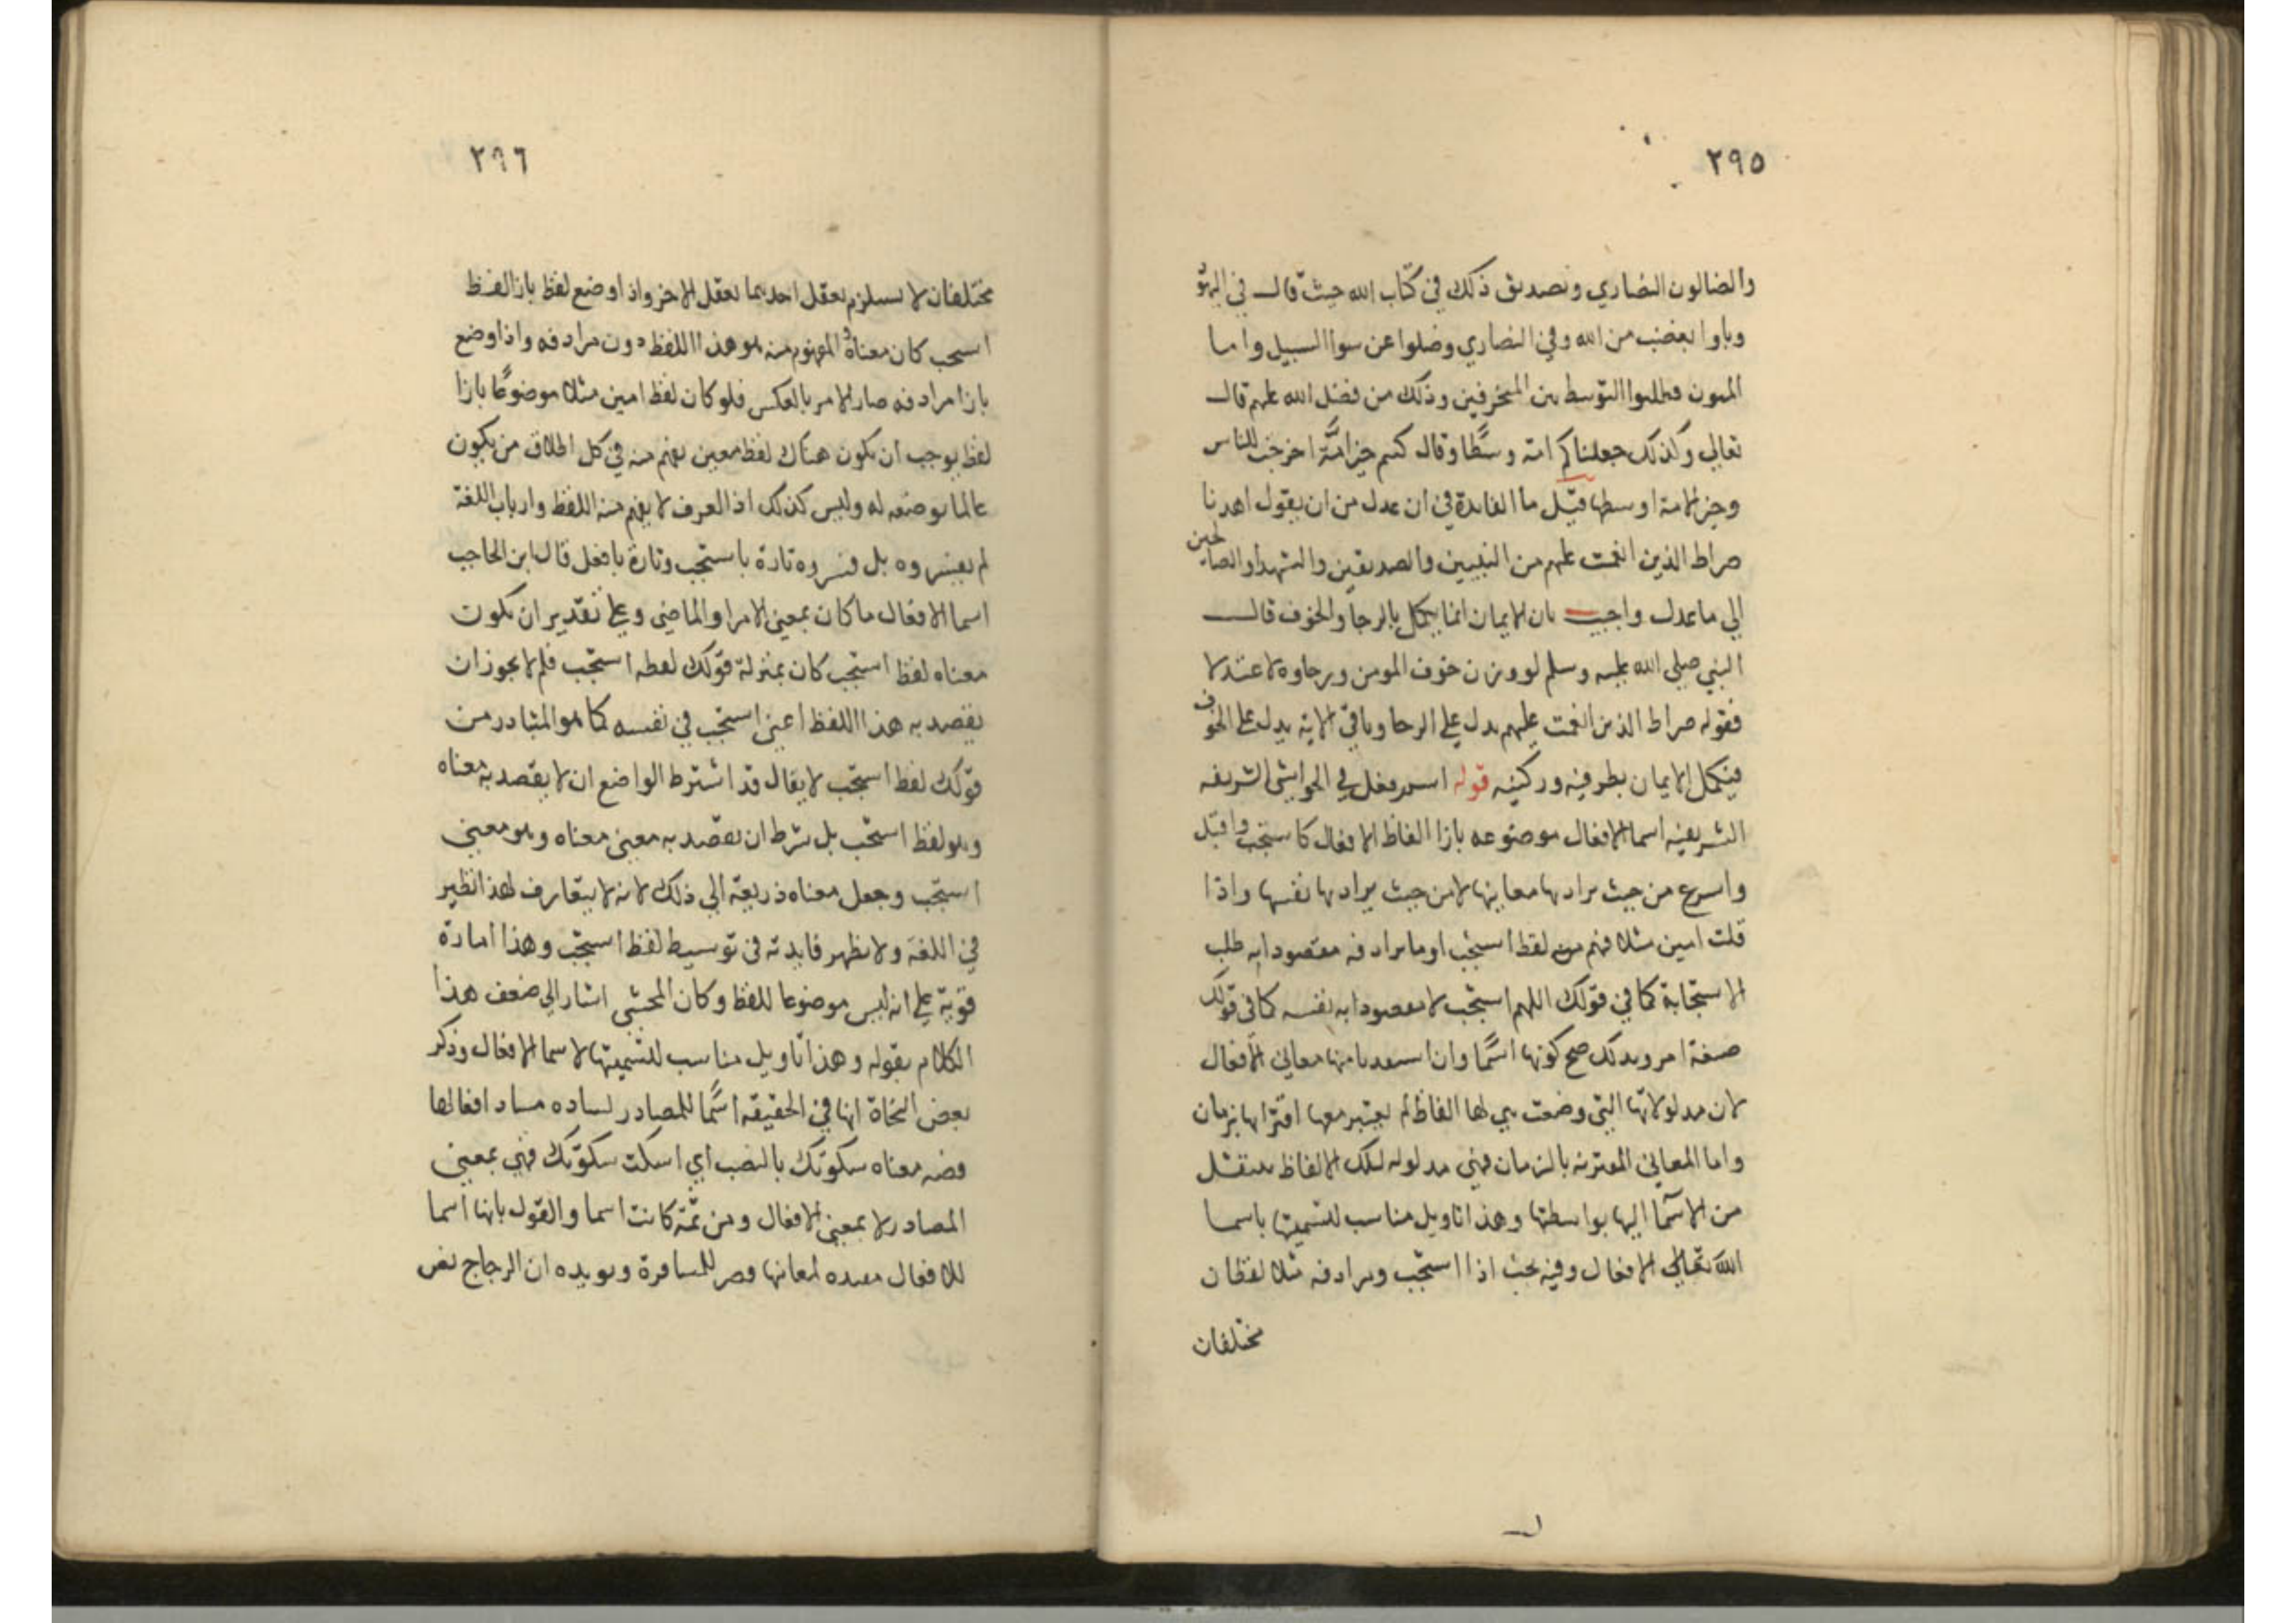 ٢٩٥
والضالون النصاري وتصديق ذلك في كتاب الله حيث قال في اليهود
وباوا بغضب من الله وفي النصاري وضلوا عن سوا السبيل واما
المومنون فطلبوا التوسط بين المنحرفين وذلك من فضل الله عليهم قال
تعالي وكذلك جعلناكم امة وسطًا وقال كنتم خير امّة اخرجت للناس
وخير الامة اوسطها قيل ما الفايدة في ان عدل من ان يقول اهدنا
صراط الذين انعمت عليهم من النبيين والصديقين والشهدا والصالحين
الي ما عدل واجيب بان الايمان انما يكمل بالرجا والخوف قال
النبي صلي الله عليه وسلم لو وزن خوف المومن ورجاوه لاعتدلا
فقوله صراط الذين انعمت عليهم يدل علي الرجا وباقي الاية يدل علي الخوف
فيكمل الايمان بطرفيه وركنيه قوله اسم فعل في الحواشي الشريفه
الشريفيه اسما الافعال موضوعه بازا الفاظ الافعال كاستجب واقبل
واسرع من حيث يراد بها معاينها لا من حيث يراد بها نفسها واذا
قلت امين مثلا فهم من لفظ استجب او ما يرادفه مقصودا به طلب
الاستجابة كما في قولك اللهم استجب لا مقصودا به نفسه كما في قولك
صيغة امر وبذلك صح كونها اسمًا وان استفدنا منها معاني الافعال
لان مدلولاتها التي وضعت هي لها الفاظ لم يعتبر معها اقترانها بزمان
واما المعاني المقترنه بالزمان فهي مدلوله لتلك الالفاظ ينتقل
من الاسما اليها بواسطتها وهذا تاويل مناسب لتسميتها باسما
الله تعالي الافعال وفيه بحث اذا استجب ويرادفه مثلا لفظان
مختلفان
٢٩٦
مختلفان لا يستلزم تعقل احديهما تعقل الاخر واذا وضع لفظ بازا لفظ
استجب كان معناه والمفهوم منه هو هذا اللفظ دون مرادفه واذا وضع
بازا مرادفه صار الامر بالعكس فلو كان لفظ امين مثلا موضوعًا بازا
لفظ يوجب ان يكون هناك لفظ معين يفهم منه في كل اطلاق من يكون
عالما بوضعه له وليس كذلك اذ العرف لا يفهم منه اللفظ وارباب اللغة
لم يفسروه بل فسروه تارة باستجب وتارة بافعل قال ابن الحاجب
اسما الافعال ما كان بمعني الامر او الماضي وعلي تقدير ان يكون
معناه لفظ استجب كان بمنزلة قولك لفظه استجب فلم لا يجوز ان
يقصد به هذا اللفظ اعني استجب في نفسه كما هو المتبادر من
قولك لفظ استجب لا يقال قد اشترط الواضع ان لا يقصد به معناه
وهو لفظ استجب بل شرط ان يقصد به معني معناه وهو معني
استجب وجعل معناه ذريعة الي ذلك لانه لا يتعارف لهذا نظير
في اللغة ولا يظهر فايدته في توسيط لفظ استجب وهذا امارة
قوية علي انه ليس موضوعا للفظ وكان المحشي اشار الي ضعف هذا
الكلام بقوله وهذا تاويل مناسب للتسميتها لاسما الافعال وذكر
بعض النحاة انها في الحقيقه اسمًا للمصادر لساده مساد افعالها
فصه معناه سكوتك بالنصب اي اسكت سكوتك فهي بمعني
المصادر لا بمعني الافعال ومن ثمّة كانت اسما والقول بانها اسما
للافعال مفيده لمعانيها قصر للمسافرة ويويده ان الزجاج نص